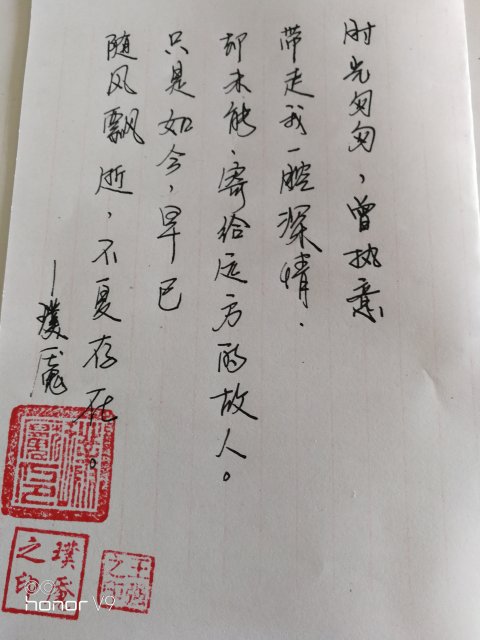 时光匆匆，曾执意
带走我一腔深情.
却未能、寄给远方的故人。
只是如今，早已
随风飘逝，不复存在。
之印
honor V9